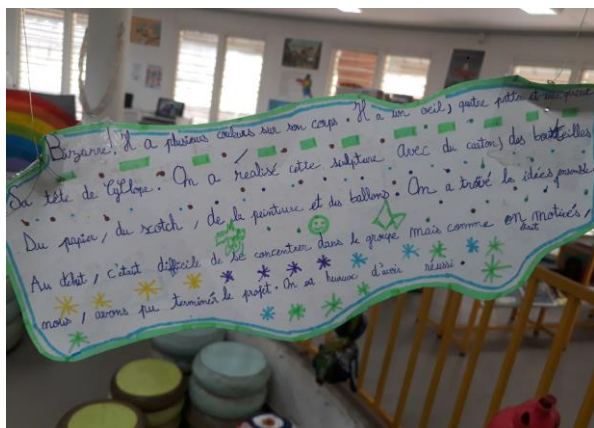 Bizarre! Il a plusieurs couleurs sur son corps. Il a un oeil, quatre pattes et une queue
Sa tête de Cyclope. On a réalisé cette sculpture avec du carton, des bouteilles
Du papier, du scotch, de la peinture et des ballons. On a trouvé les idées ensemble
Au début, c'était difficile de se concentrer dans le groupe mais comme on était motivés,
nous, avons pu terminer le projet. On est heureux d'avoir réussi.